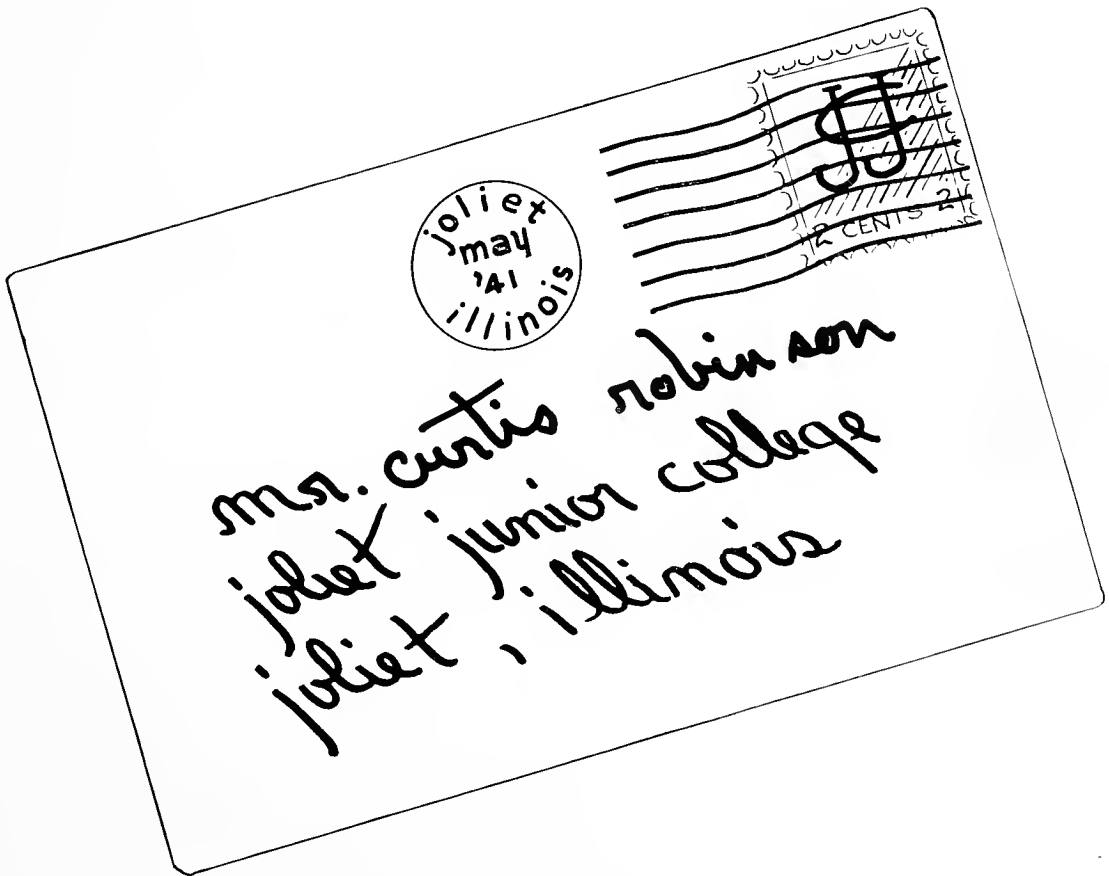 joliet
may
'41
illinois
JJC
2 CENTS 2
mr. curtis robinson
joliet junior college
joliet, illinois